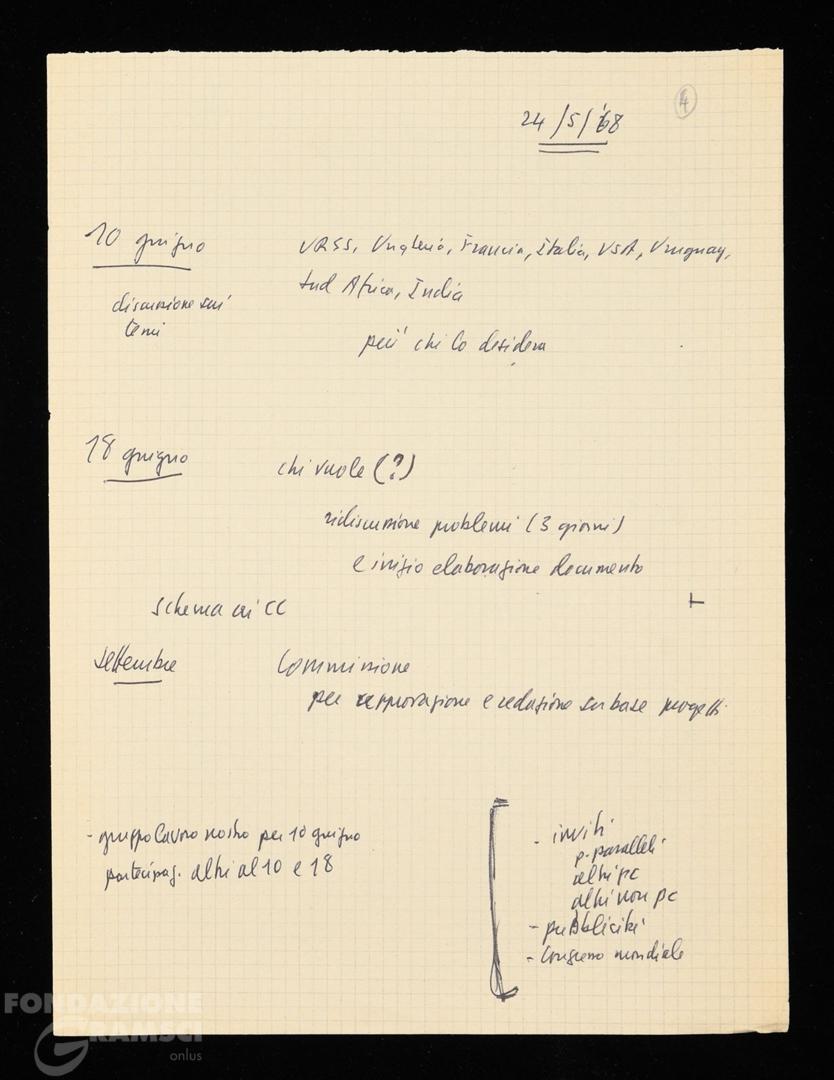 4
24/5/'68
10 giugno
URSS, Ungheria, Francia, Italia, USA, Uruguay,
Sud Africa, India
discussione sui
temi
più chi lo desidera
18 giugno
chi vuole (?)
ridiscussione problemi (3 giorni)
e inizio elaborazione documento
schema ai CC
settembre
Commissione
per approvazione e redazione su base progetti
- gruppo lavoro nostro per 10 giugno
partecipaz. altri al 10 e 18
- inviti
p. paralleli
altri pc
altri non pc
- pubblicità
- Congresso mondiale
FONDAZIONE
GRAMSCI
onlus